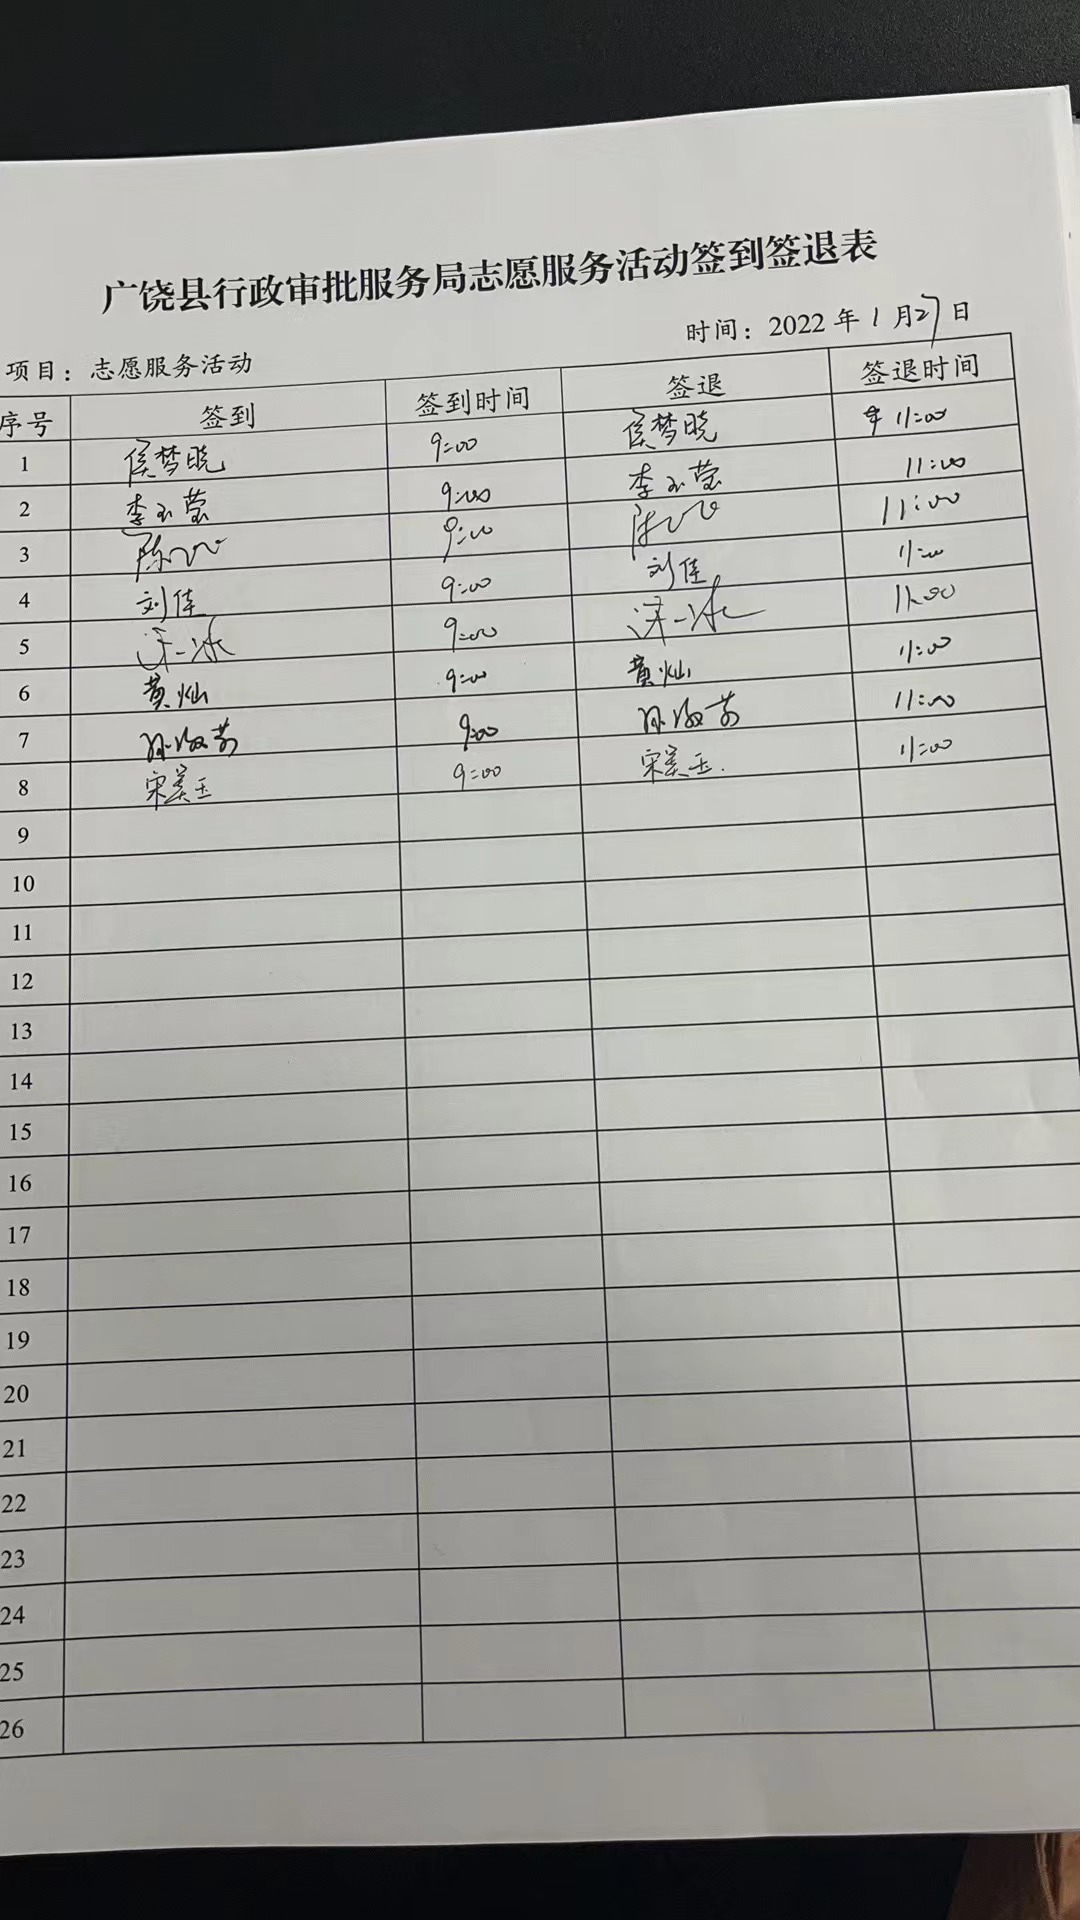 广饶县行政审批服务局志愿服务活动签到签退表
项目：志愿服务活动 时间：2022 年 1 月 27 日
序号 签到 签到时间 签退 签退时间
1 侯梦晓 9:00 侯梦晓 11:00
2 李玉莹 9:00 李玉莹 11:00
3 陈 9:00 陈 11:00
4 刘佳 9:00 刘佳 11:00
5 9:00 11:00
6 黄灿 9:00 黄灿 11:00
7 孙 9:00 孙 11:00
8 宋 玉 9:00 宋 玉 11:00
9
10
11
12
13
14
15
16
17
18
19
20
21
22
23
24
25
26